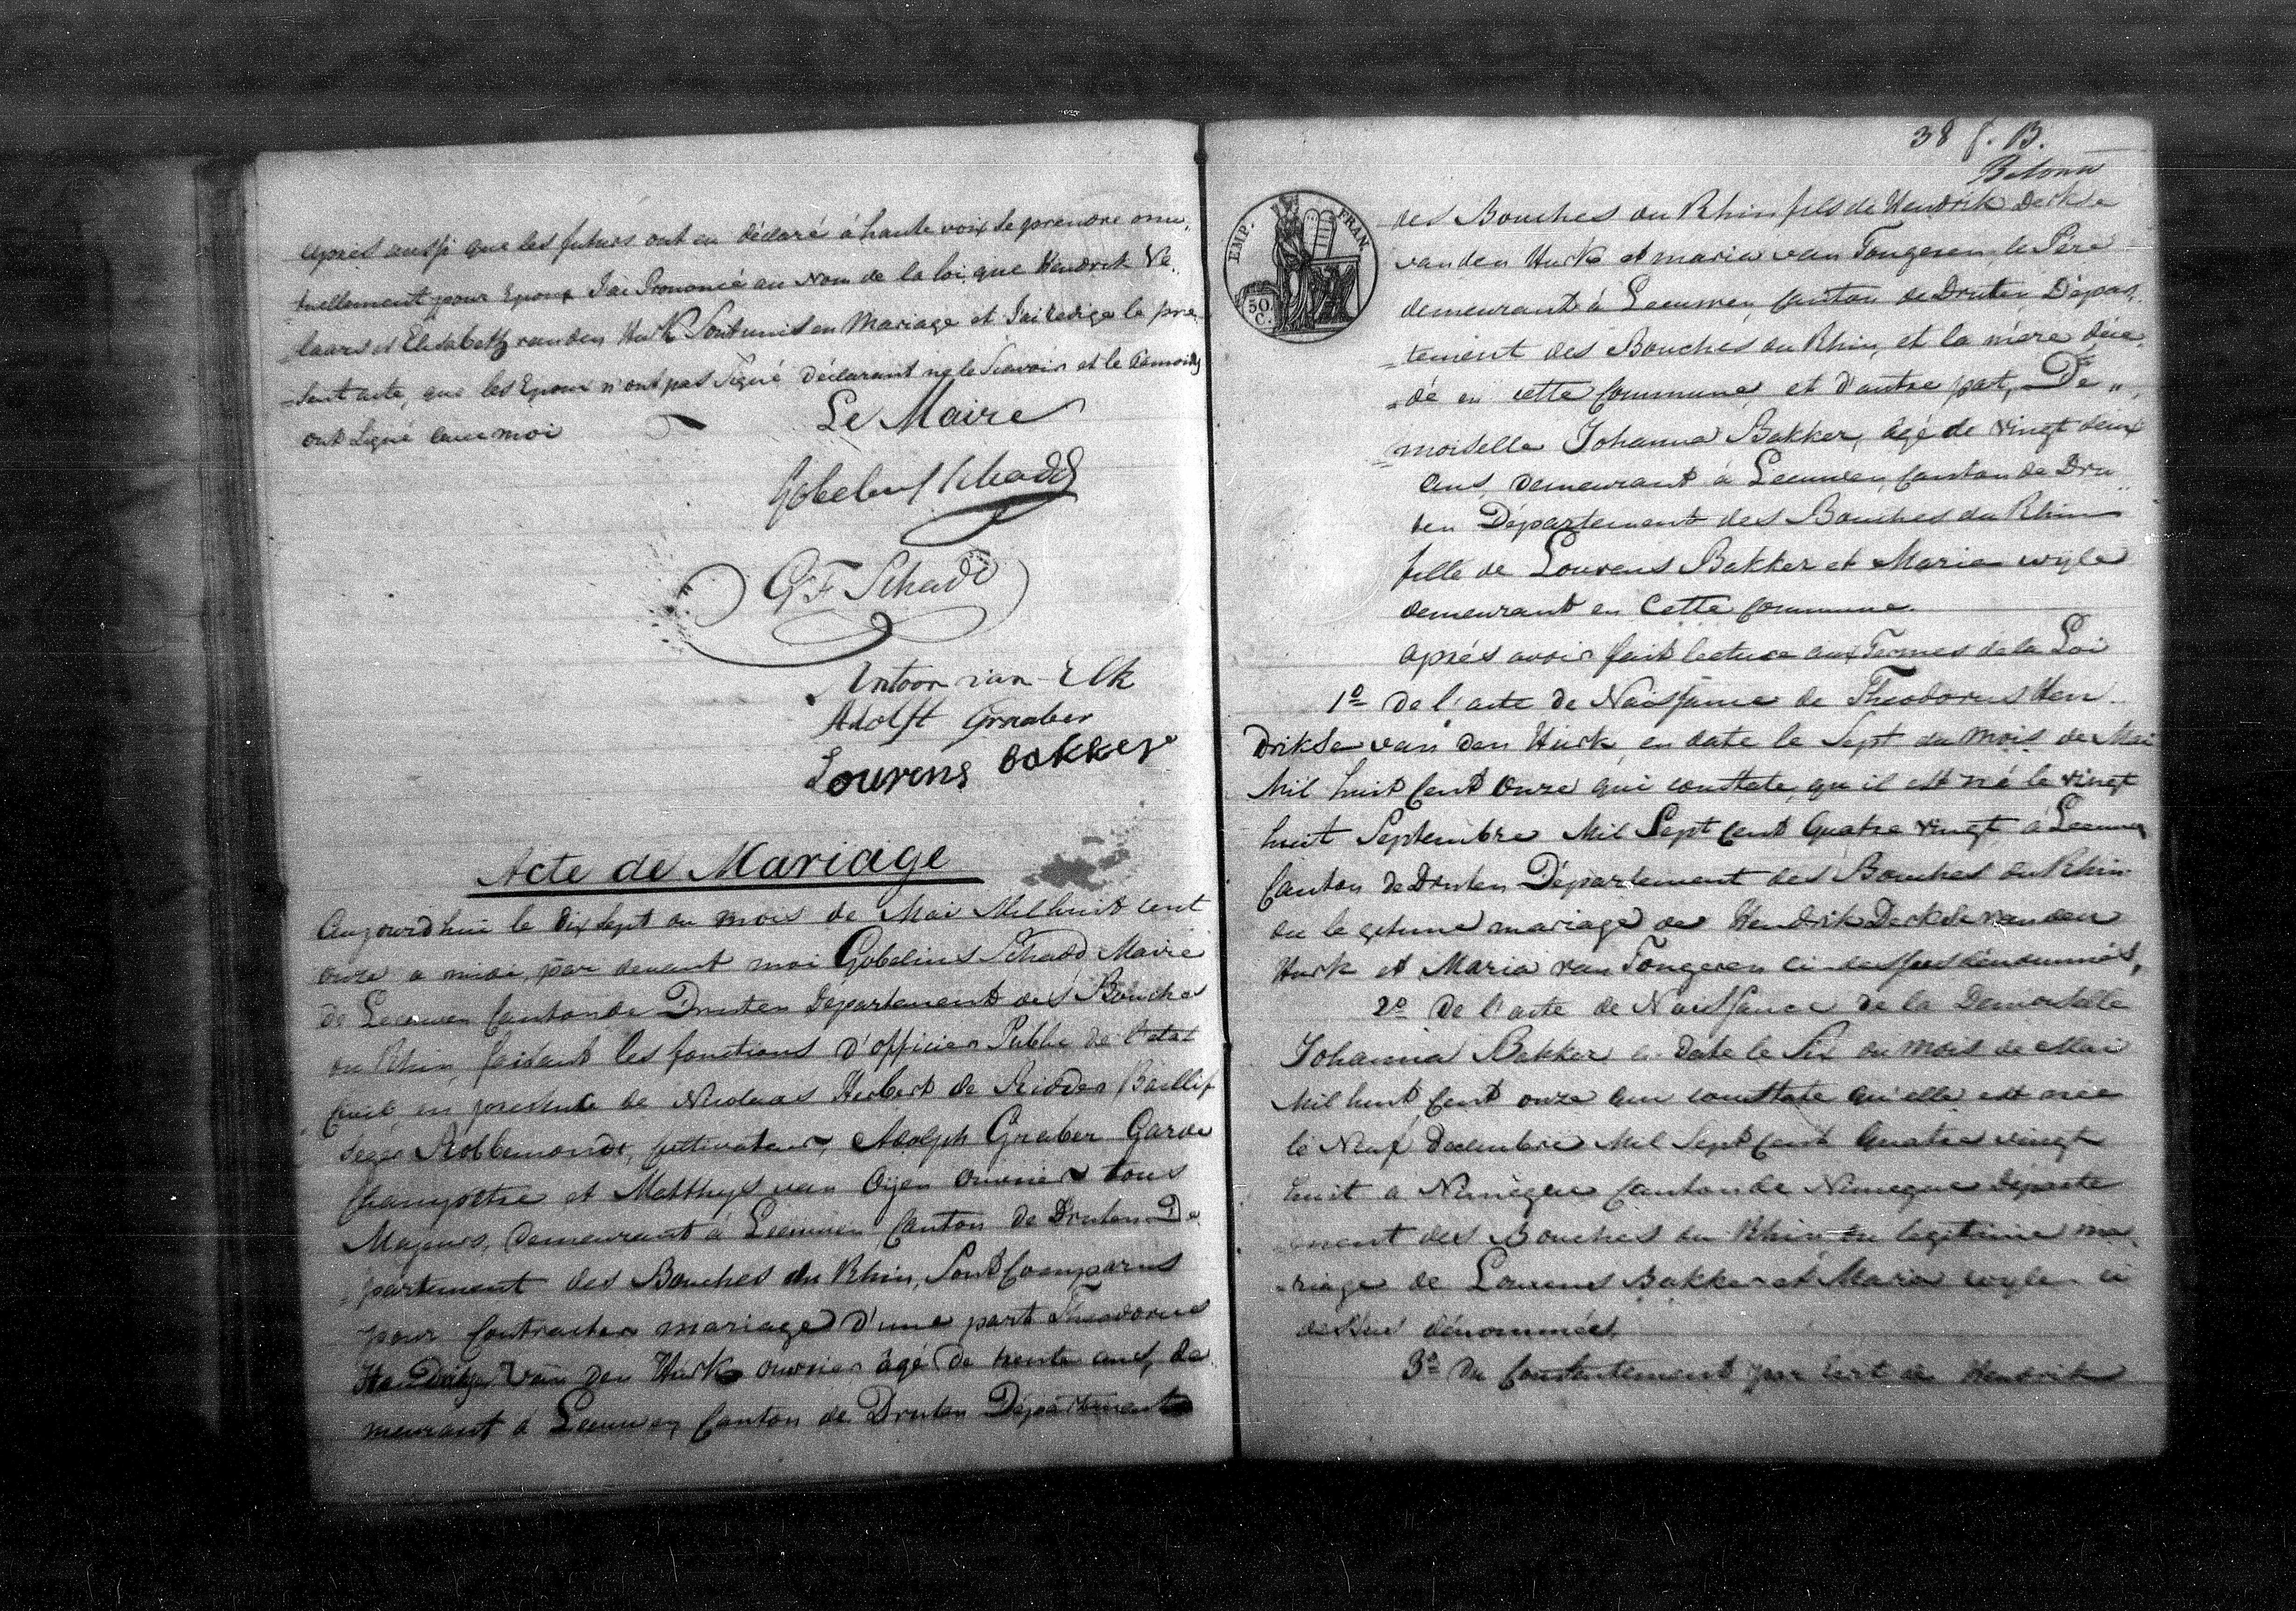 après aussi que les futurs ont eu déclaré á haute voix se prendre mu„
tuellement pour Epoux J'ai Prononcé au Nom de la loi que Hendrik Ve„
laars et Elisabeth van den Hurk Sont unis en Mariage et J'ai redigé le pre„
sent acte, que les Epoux n'ont pas Signé déclarant ne le Scavoir et le temoins
ont Signé avec moi
Le Maire
Gobelius Schadd
G F Schadd
Antoon van Elk
Adolft Graaber
Lourens bakker
Acte de Mariage
Aujourd'hui le dix Sept du mois de Mai Mil huit cent
onze a midi, par devant moi Gobelius Schadd Maire
de Leeuwen Canton de Druten Departement des Bouches
du Rhin, faisant les fonctions d'officier Public de l'etat
Civil en presence de Nicolaas Herbert de Ridder Baillif
Robbemondt, Cultivateur, Adolph Graber Garde
Champetre et Matthys van Oijen ouvrier tous
Majeurs, demeurant á Leeuwen Canton de Druten De
partement des Bouches du Rhin, Sont Comparus
pour Contracter mariage d'une part Theodorus
Hendrikse van den Hurk ouvrier âgé de trente ans, de
meurant á Leeuwen Canton de Druten Département
38 f. B.
des Bouches du Rhin fils de Hendrik Derkse
van den Hurk et maria van Tongeren le Père
demeurant á Leeuwen, Canton de Druten Dépar„
tement des Bouches du Rhin, et la mère décé„
dé en cette Commune, et d'autre part, De„
moiselle Johanna Bakker, âgé de vingt deux
ans, demeurant á Leeuwen, Canton de Dru„
ten Département des Bouches du Rhin
fille de Lourens Bakker et Maria wyler
demeurant en Cette Commune
Après avoir fait lecture aux Termes de la Loi
1º De l'acte de Naissance de Theodorus Hen„
drikse van den Hurk en date le Sept du mois de Mai
Mil huit Cent Onze qui constate, qu'il est né le vingt
huit Septembre Mil Sept Cent Quatre vingt á Leeuwen
Canton de Druten Département des Bouches du Rhin
du mariage de Hendrik Derkse van den
Hurk et Maria van Tongeren ci dessus dénommés,
2º De l'acte de Naissance de la Demoiselle
Johanna Bakker en date le Six du mois de Mai
Mil huit Cent onze qui constate qu'elle est née
le Neuf Decembre Mil Sept Cent Quatre vingt
huit a Nimègue Canton de Nimegue Départe
ment des Bouches du Rhin du legitime ma„
riage de Lourens Bakker et Maria wyler ci
dessus dénommées,
3º Du Consentement par Ecrit de Hendrik
EMP. FRAN.
50.
C.